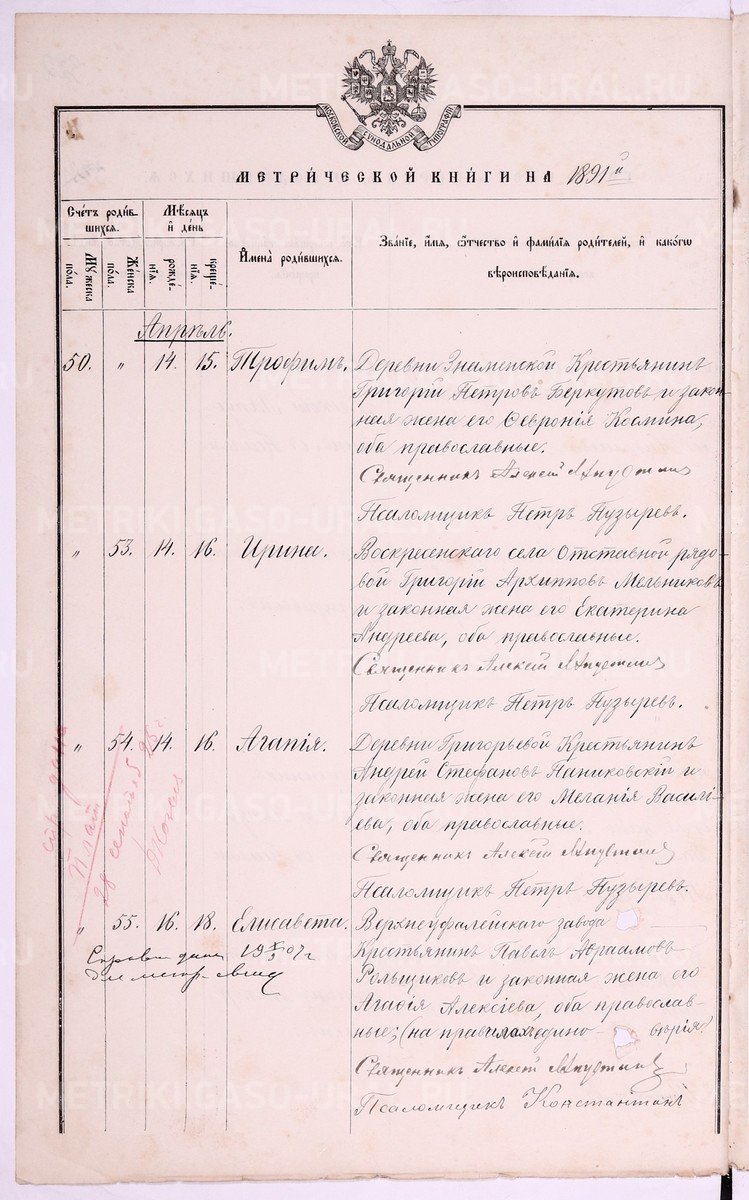 МОСКОВСКОЙ СѴНОДАЛЬНОЙ ТИПОГРАФІИ
МЕТРИ́ЧЕСКОЙ КНИ́ГИ НА 1891й
Сче́тъ роди́в-
шихся.
Мѣ́сяцъ
и҆ де́нь
И҆мена̀ роди́вшихся.
Зва́нїе, и҆́мя, ѻ҆́тчество и҆ фами́лїя роди́телей, и҆ како́гѡ
вѣроисповѣ́данїя.
Мꙋ́жеска
по́ла.
Же́нска
по́ла.
рожде́-
нїя.
креще́-
нїя.
Апрѣль.
50. " 14. 15. Трофимъ. Деревни Знаменской Крестьянинъ
Григорій Петровъ Беркутовъ и закон-
ная жена его Ѳевронія Космина,
оба православные.
Священникъ Алексій
Псаломщикъ Петръ Пузыревъ.
" 53. 14. 16. Ирина. Воскресенскаго села Отставной рядо-
вой Григорій Архипповъ Мельниковъ
и законная жена его Екатерина
Андреева, оба православные.
Священникъ Алексій
Псаломщикъ Петръ Пузыревъ.
" 54. 14. 16. Агапія. Деревни Григорьевой Крестьянинъ
Андрей Стефановъ Паниковскій и
законная жена его Меланія Василі-
ева, оба православные.
Священникъ Алексій
Псаломщикъ Петръ Пузыревъ.
дана
28 25 г
" 55. 16. 18. Елисавета. Верхнеуфалейскаго завода
Крестьянинъ Павелъ Авраамовъ
Рольщиковъ и законная жена его
Агафія Алексіева, оба православ-
ные; (на правилахъ едино- вѣрія)
Священникъ Алексій
Псаломщикъ Константинъ
дана 19 07 г
METRIKI.GASO-URAL.RU